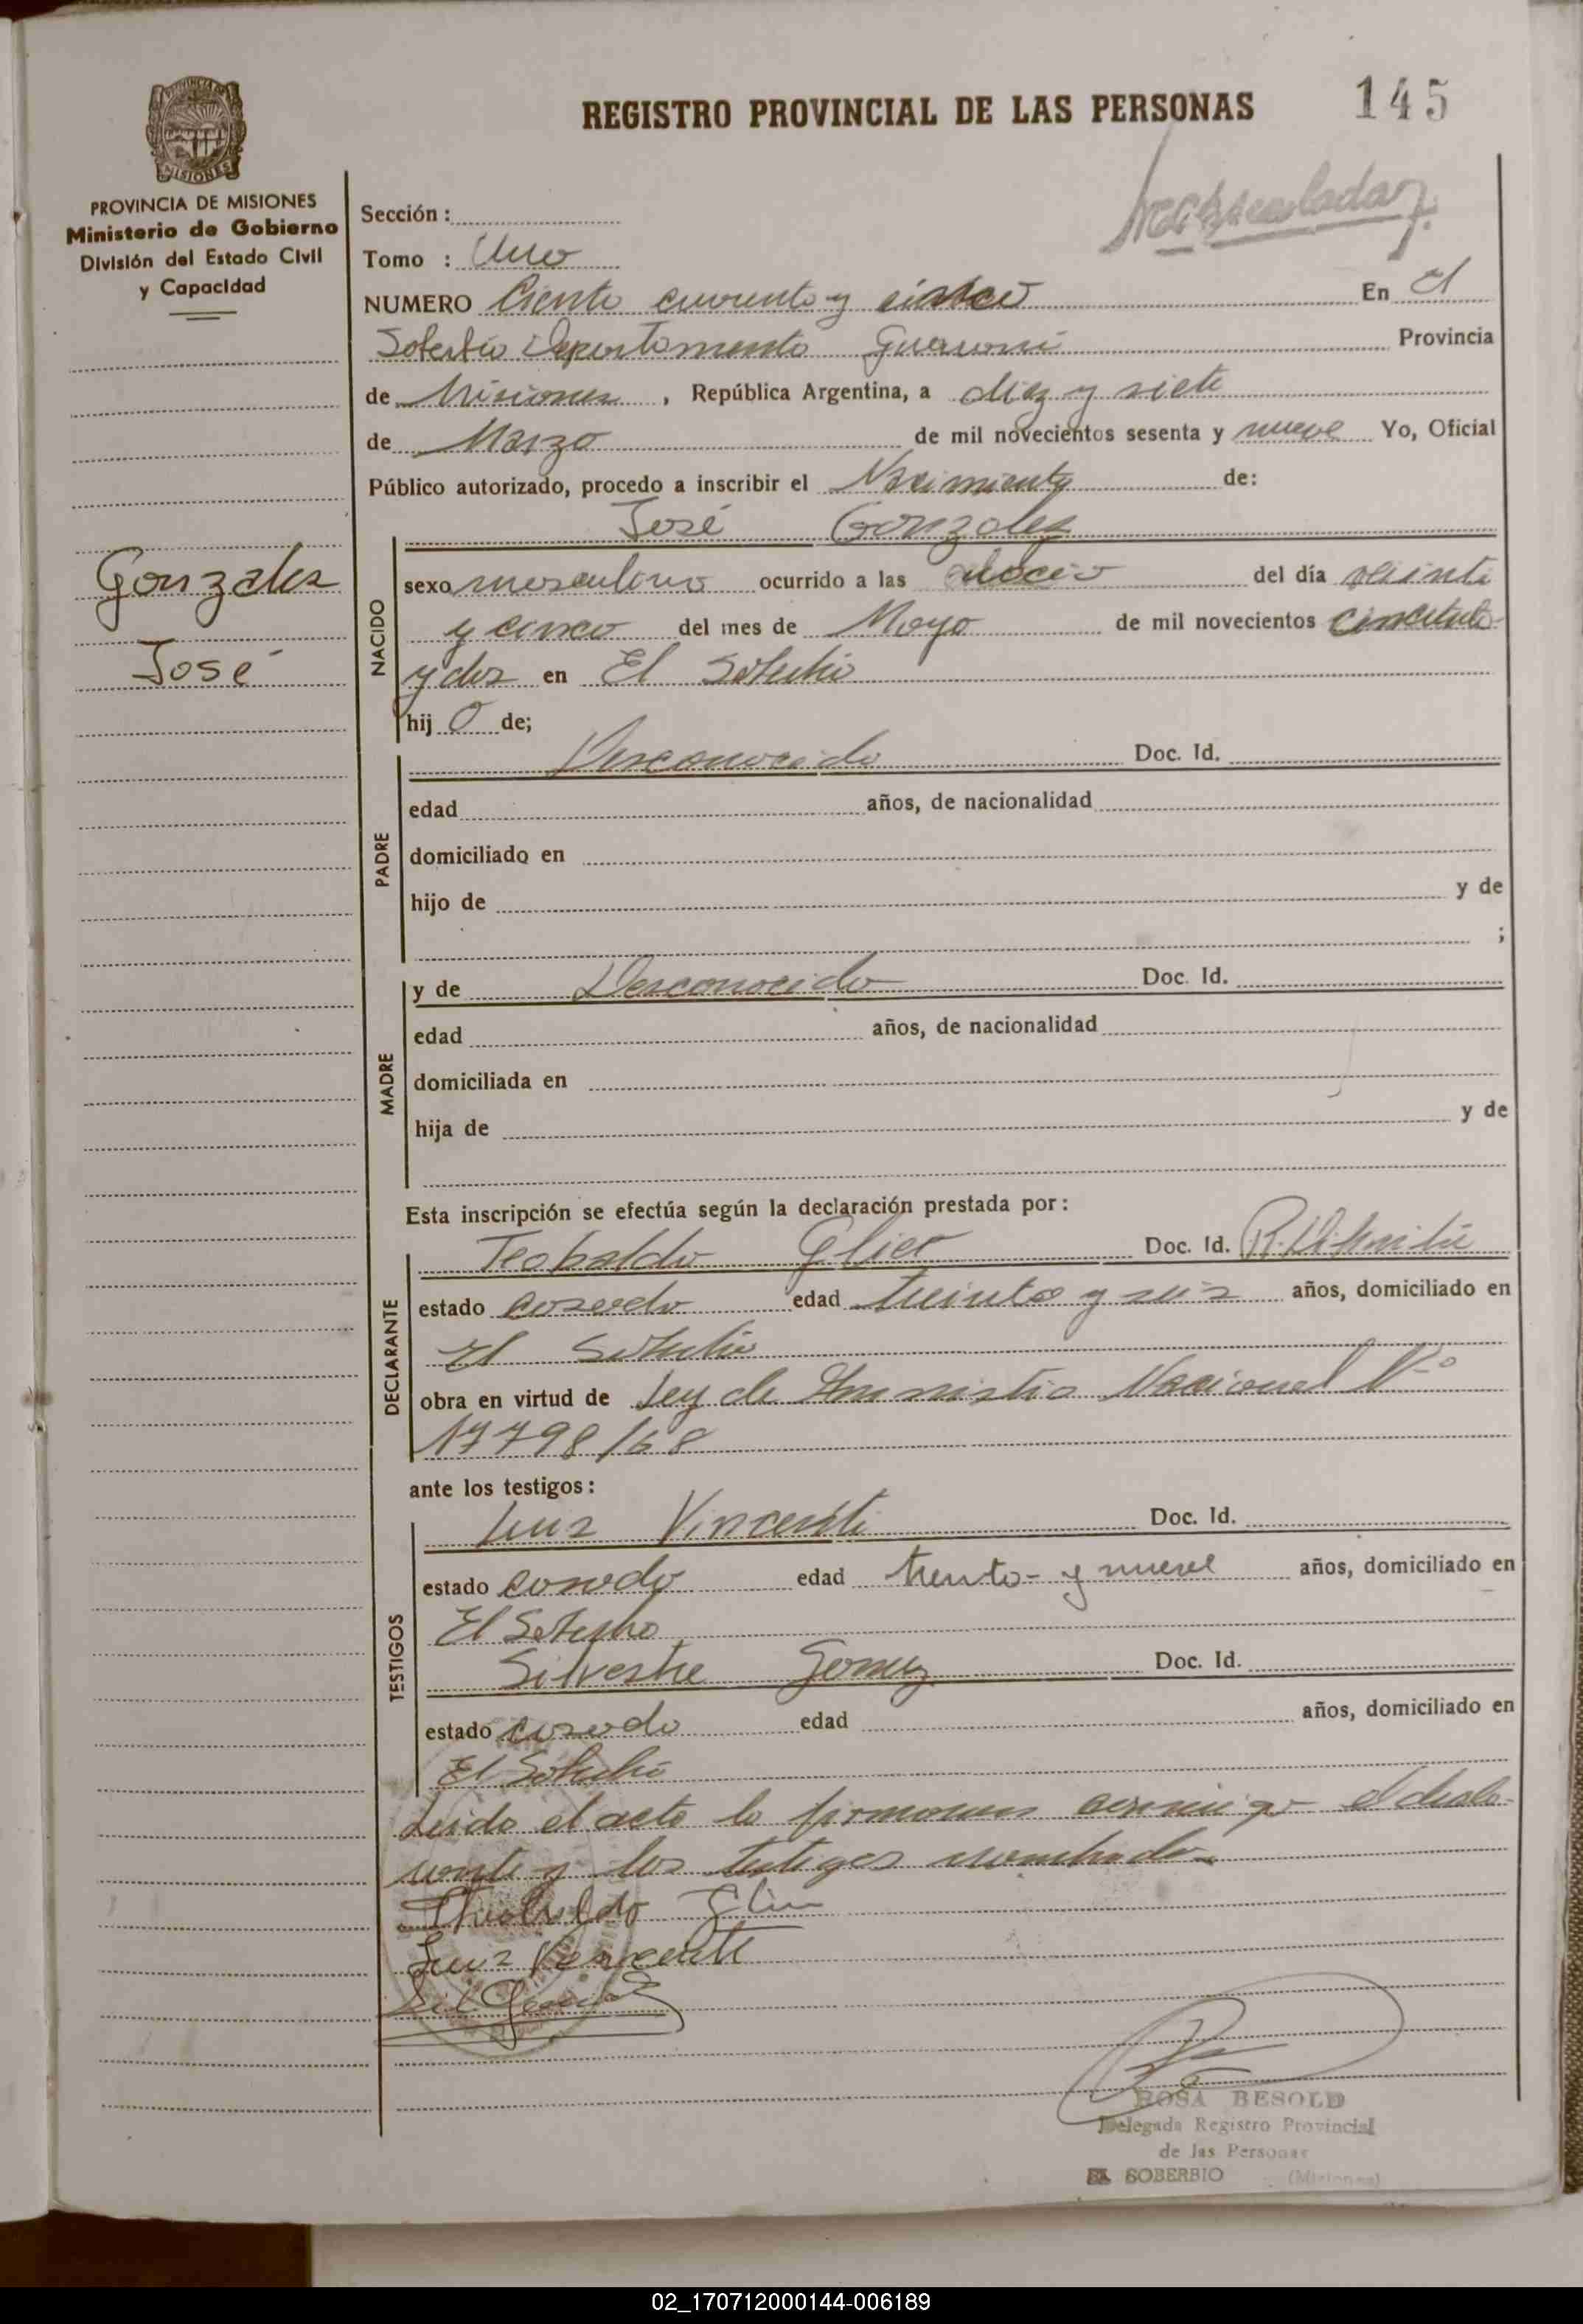 REGISTRO PROVINCIAL DE LAS PERSONAS 145
PROVINCIA DE MISIONES
MISIONES
PROVINCIA DE MISIONES
Ministerio de Gobierno
División del Estado Civil
y Capacidad
Sección :
Tomo : Uno
NUMERO Ciento cuarenta y cinco En el
Soberbio Departamento Guaraní Provincia
de Misiones, República Argentina, a diez y siete
de Marzo de mil novecientos sesenta y nueve Yo, Oficial
Público autorizado, procedo a inscribir el Nacimiento de:
José Gonzalez
Gonzalez
José
NACIDO
sexo masculino ocurrido a las del día veinte
y cinco del mes de Mayo de mil novecientos cincuenta
y dos en El Soberbio
hij o de;
PADRE
Desconocido Doc. Id.
edad años, de nacionalidad
domiciliado en
hijo de y de
;
MADRE
y de Desconocido Doc. Id.
edad años, de nacionalidad
domiciliada en
hija de y de
Esta inscripción se efectúa según la declaración prestada por:
DECLARANTE
Teobaldo Glier Doc. Id.
estado casado edad treinta y seis años, domiciliado en
El Soberbio
obra en virtud de Ley de Amnistia Nacional Nº
17798/68
ante los testigos:
TESTIGOS
Luis Vincenti Doc. Id.
estado casado edad treinta y nueve años, domiciliado en
El Soberbio
Silvestre Gomez Doc. Id.
estado casado edad años, domiciliado en
El Soberbio
Leido el acta la firmaron conmigo el decla-
rante y los testigos nombrados
ROSA BESOLD
Delegada Registro Provincial
de las Personas
EL SOBERBIO (Misiones)
02_170712000144-006189